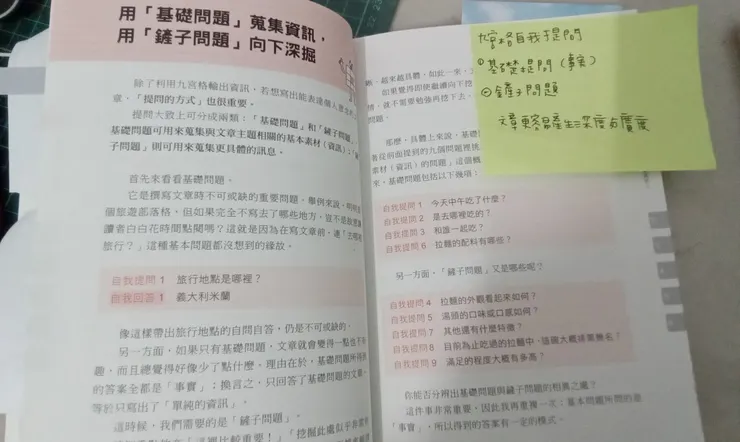 用「基礎問題」蒐集資訊，
用「鏟子問題」向下深掘
除了利用九宮格輸出資訊，若想寫出能表達個人
章，「提問的方式」也很重要。
提問大致上可分成兩類：「基礎問題」和「鏟子問題」
基礎問題可用來蒐集與文章主題相關的基本素材（資訊）；
子問題」則可用來蒐集更具體的訊息。
首先來看看基礎問題。
它是撰寫文章時不可或缺的重要問題。舉例來說，明明是
個旅遊部落格，但如果完全不寫去了哪些地方，豈不是
讀者白白花時間點閱嗎？這就是因為在寫文章前，連「去哪裡
旅行？」這種基本問題都沒想到的緣故。
自我提問 1 旅行地點是哪裡？
自我回答 1 義大利米蘭
像這樣帶出旅行地點的自問自答，仍是不可或缺的。
另一方面，如果只有基礎問題，文章就會變得一點也不有
趣，而且總覺得好像少了點什麼。理由在於，基礎問題所得到
的答案全都是「事實」；換言之，只回答了基礎問題的文章，
等於只寫出了「單純的資訊」。
這時候，我們需要的是「鏟子問題」。
越來越具體，如此一來，文
如果覺得即使繼續向下挖
情，就不需要勉強再挖下去，
問題。
那麼，具體上來說，基礎
者從前面提到的九個問題裡挑
素材（資訊）的問題」這個機
來，基礎問題包括以下幾項：
自我提問 1 今天中午吃了什麼？
自我提問 2 是去哪裡吃的？
自我提問 3 和誰一起吃？
自我提問 6 拉麵的配料有哪些？
另一方面，「鏟子問題」又是哪些呢？
自我提問 4 拉麵的外觀看起來如何？
自我提問 5 湯頭的口味或口感如何？
自我提問 7 其他還有什麼特徵？
自我提問 8 目前為止吃過的拉麵中，這間大概排第幾名？
自我提問 9 滿足的程度大概有多高？
你能否分辨出基礎問題與鏟子問題的相異之處？
這件事非常重要，因此我再重複一次：基本問題所問的是
「事實」，所以得到的答案有一定的模式。
九宮格自我提問
①基礎提問（事實）
②鏟子問題
文章更容易產生深度與廣度